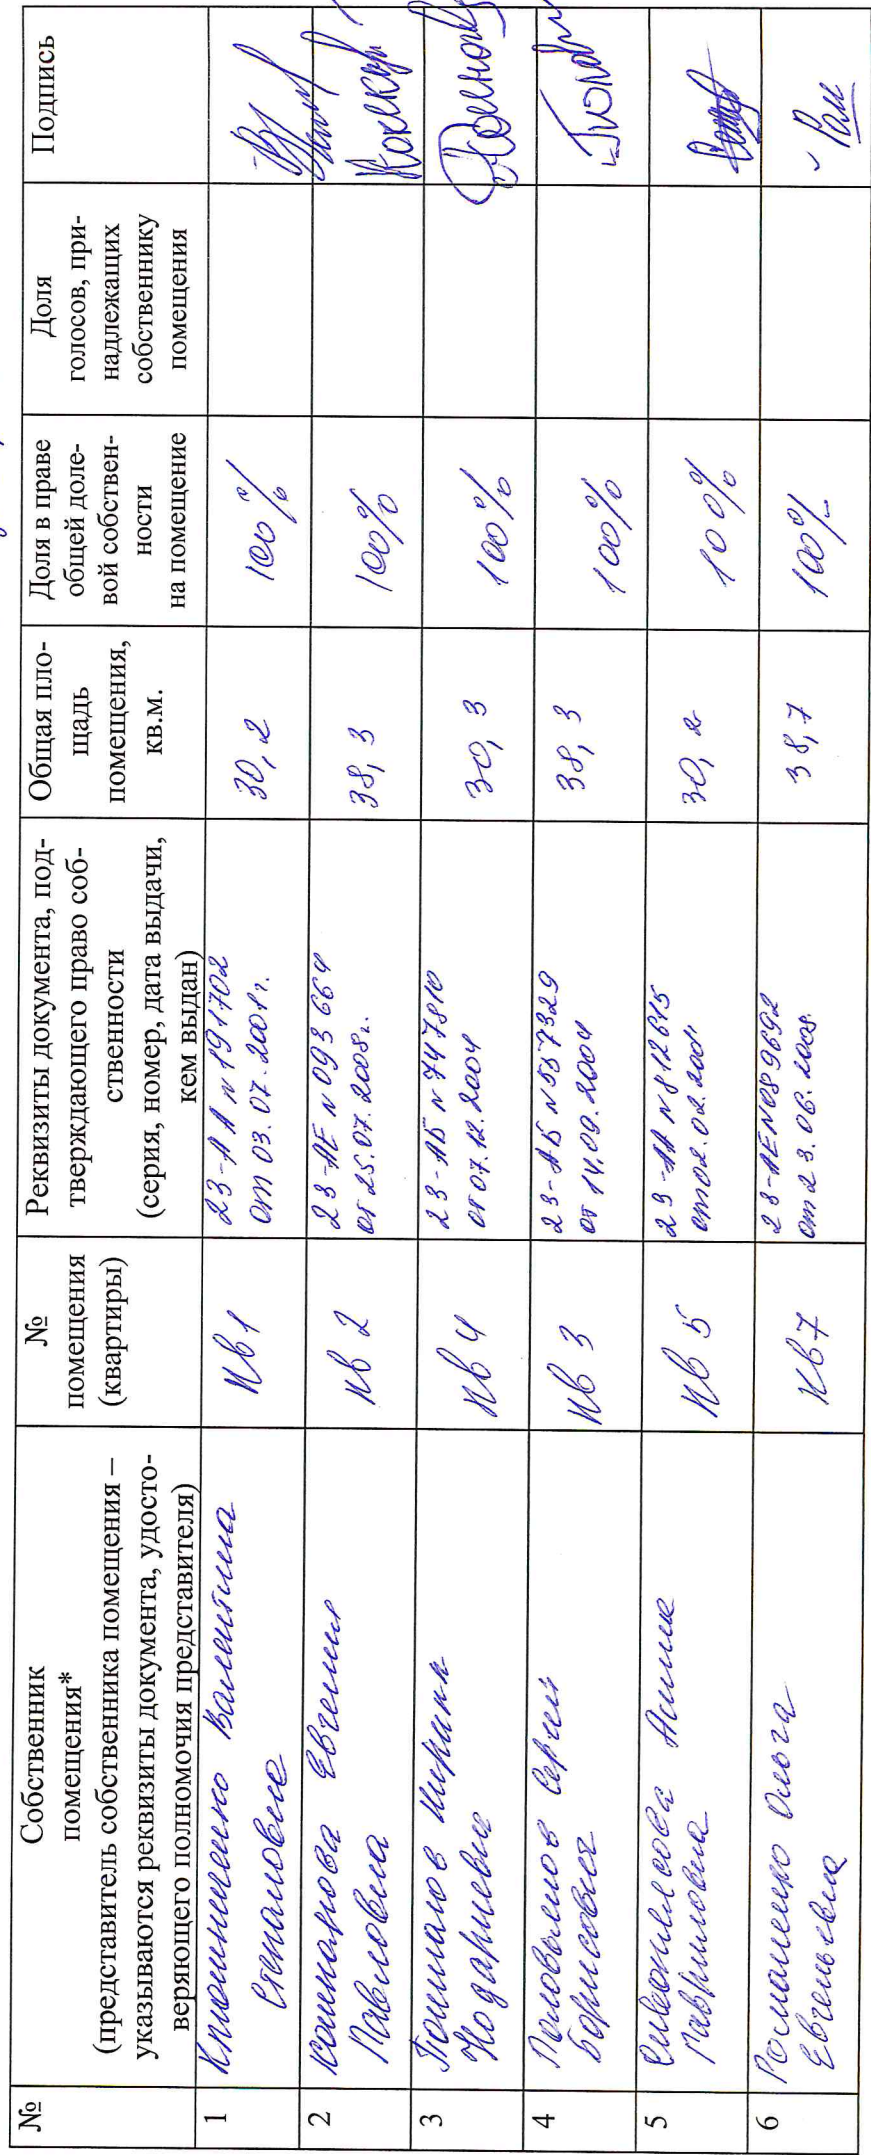 №
Собственник
помещения*
(представитель собственника помещения –
указываются реквизиты документа, удосто-
веряющего полномочия представителя)
№
помещения
(квартиры)
Реквизиты документа, под-
тверждающего право соб-
ственности
(серия, номер, дата выдачи,
кем выдан)
Общая пло-
щадь
помещения,
кв.м.
Доля в праве
общей доле-
вой собствен-
ности
на помещение
Доля
голосов, при-
надлежащих
собственнику
помещения
Подпись
1
Валентина
Степановна
кв 1
23-АА №191702
от 03.07.2001г.
30,2
100%
2
Евгения
Павловна
кв 2
23-АЕ №093664
от 25.07.2008г.
38,3
100%
3
Нодариевич
кв 4
23-АБ №747810
от 07.12.2004
30,3
100%
4
Сергей
Борисович
кв 3
23-АБ №557329
от 14.09.2004
38,3
100%
5
Гавриловна
кв 5
23-АА №812615
от 02.02.200
30,2
100%
6
Романенко Ольга
Евгеньевна
кв 7
23-АЕ №089692
от 23.06.2008.
38,7
100%